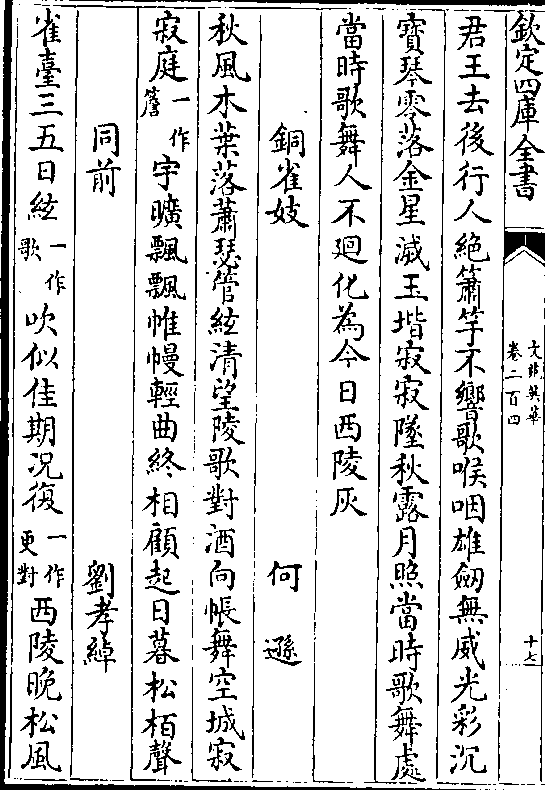 欽定四庫全書
文苑英華
卷二百四
十七
君王去後行人絶簫竽不響歌喉咽雄劒無威光彩沉
寶琴零落金星滅玉堦寂寂墜秋露月照當時歌舞處
當時歌舞人不廻化為今日西陵灰
銅雀妓 何遜
秋風木葉落蕭瑟管絃清望陵歌對酒向帳舞空城寂
寂庭一作簷宇曠飄飄帷幔輕曲終相顧起日暮松栢聲
同前 劉孝綽
雀臺三五日絃一作歌吹似佳期况復一作更對西陵晩松風